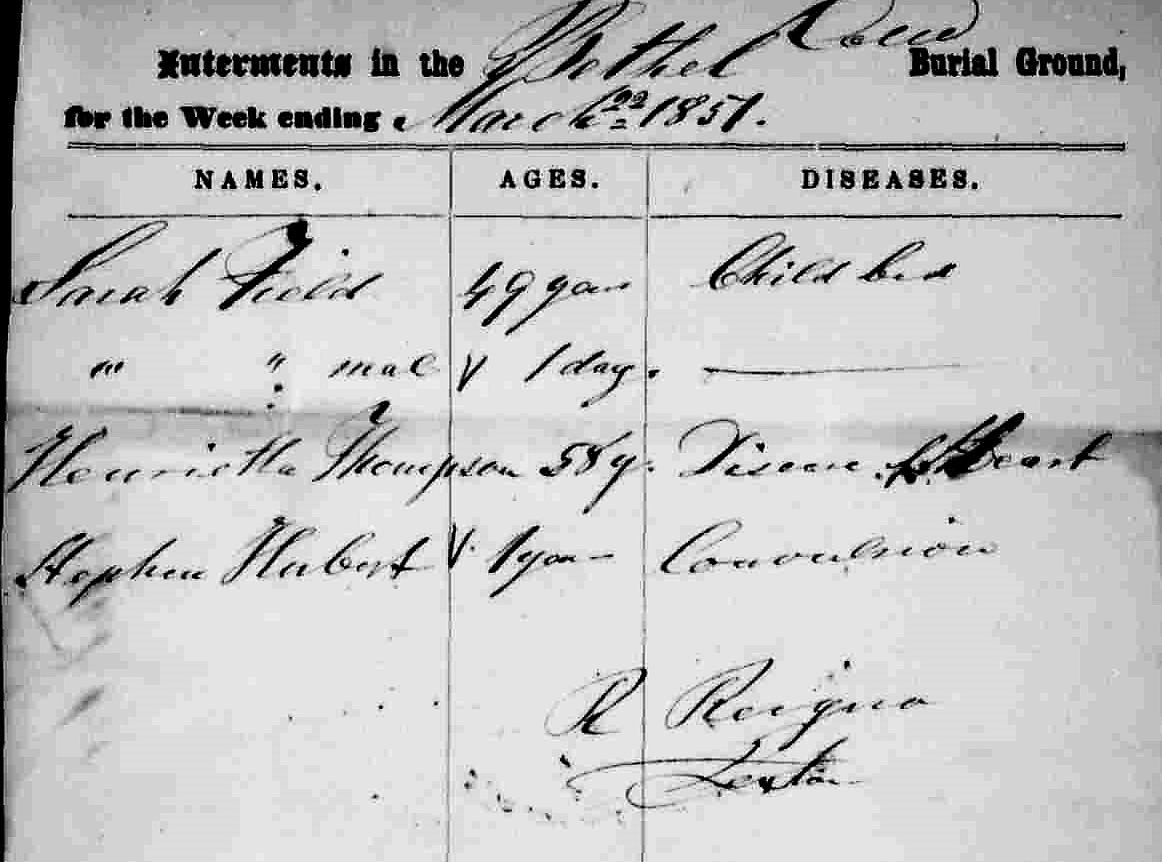 Interments in the Bethel Burial Ground,
for the Week ending March 22 1851.
NAMES. AGES. DISEASES.
Sarah Field 49 year Child bed
" " male 1 day.
Henrietta Thompson 58 y. Disease of Heart
Stephen Hubert 1 year Convulsion
R
Sexton